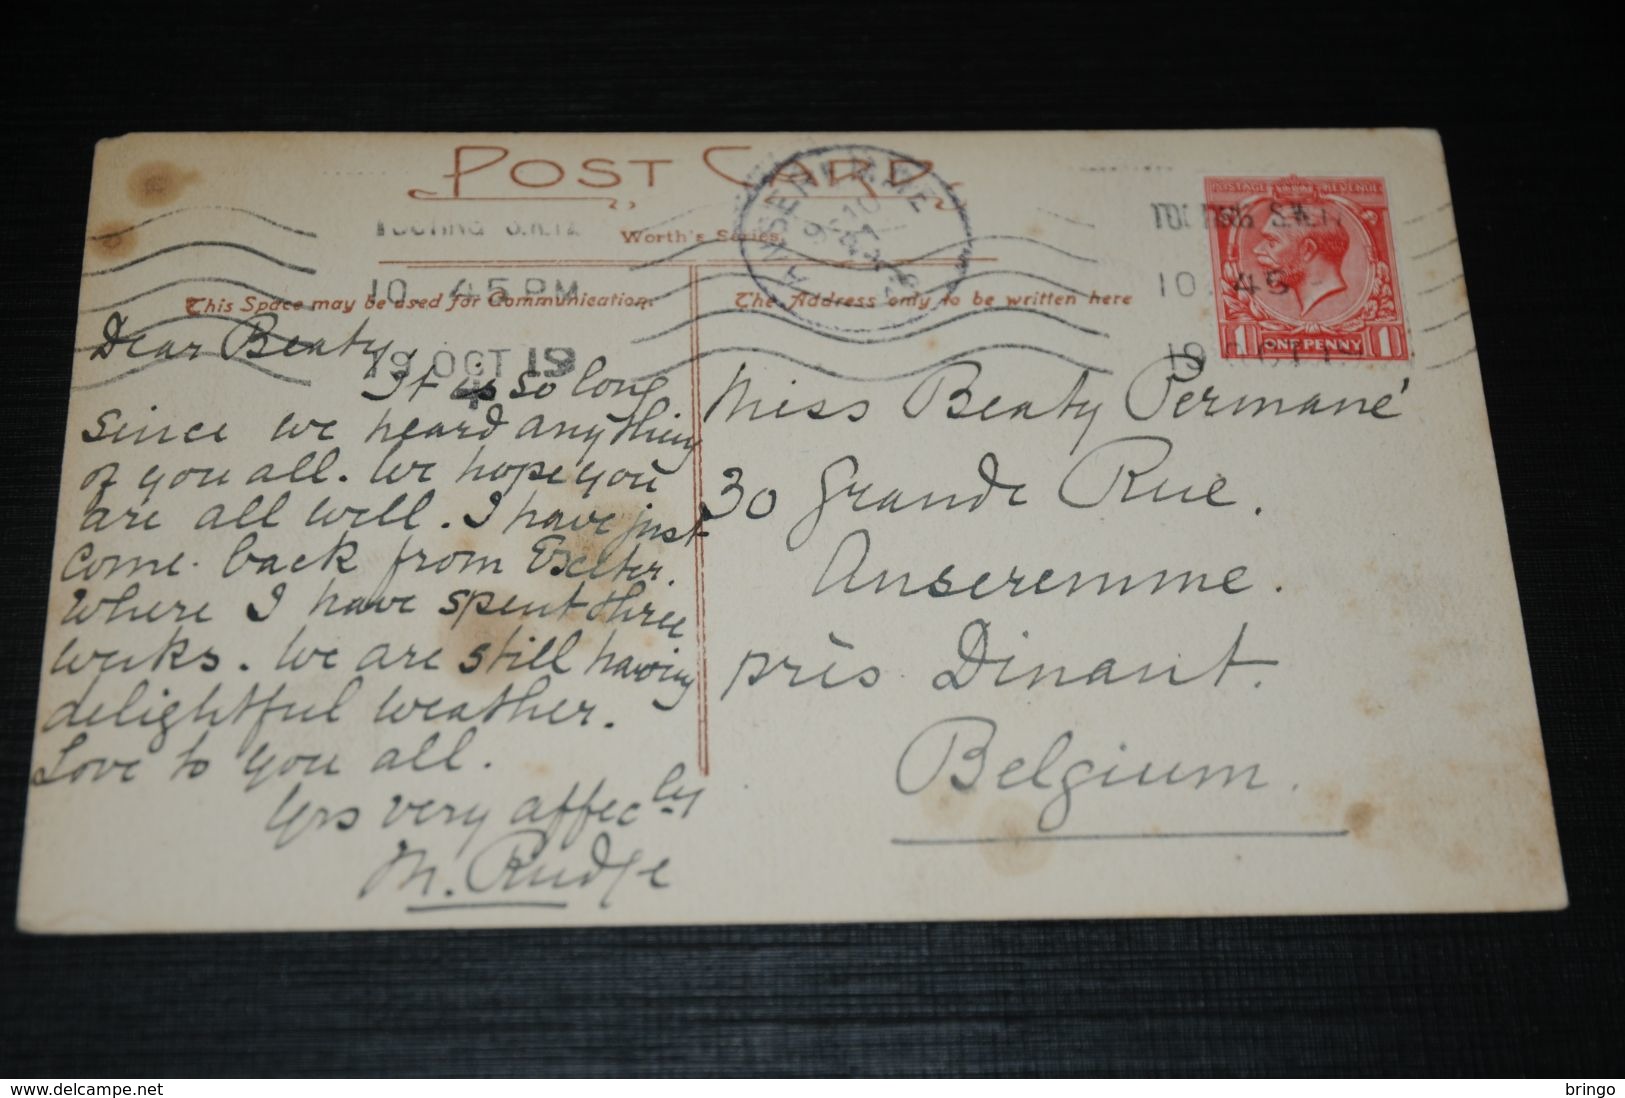 POST CARD
TOOTING S.W.17
Worth's Series.
ANSEREMME
10 45 PM
19 OCT 19
4
This Space may be used for Communication.
The Address only to be written here
POSTAGE REVENUE
1 ONE PENNY 1
Dear Beaty,
It is so long
since we heard anything
of you all. We hope you
are all well. I have just
come back from Exeter.
where I have spent three
weeks. We are still having
delightful weather.
Love to you all.
Yrs very affecly
M. Rudge
Miss Beaty Permané
30 Grande Rue.
Anseremme.
près Dinant.
Belgium.
www.delcampe.net
bringo